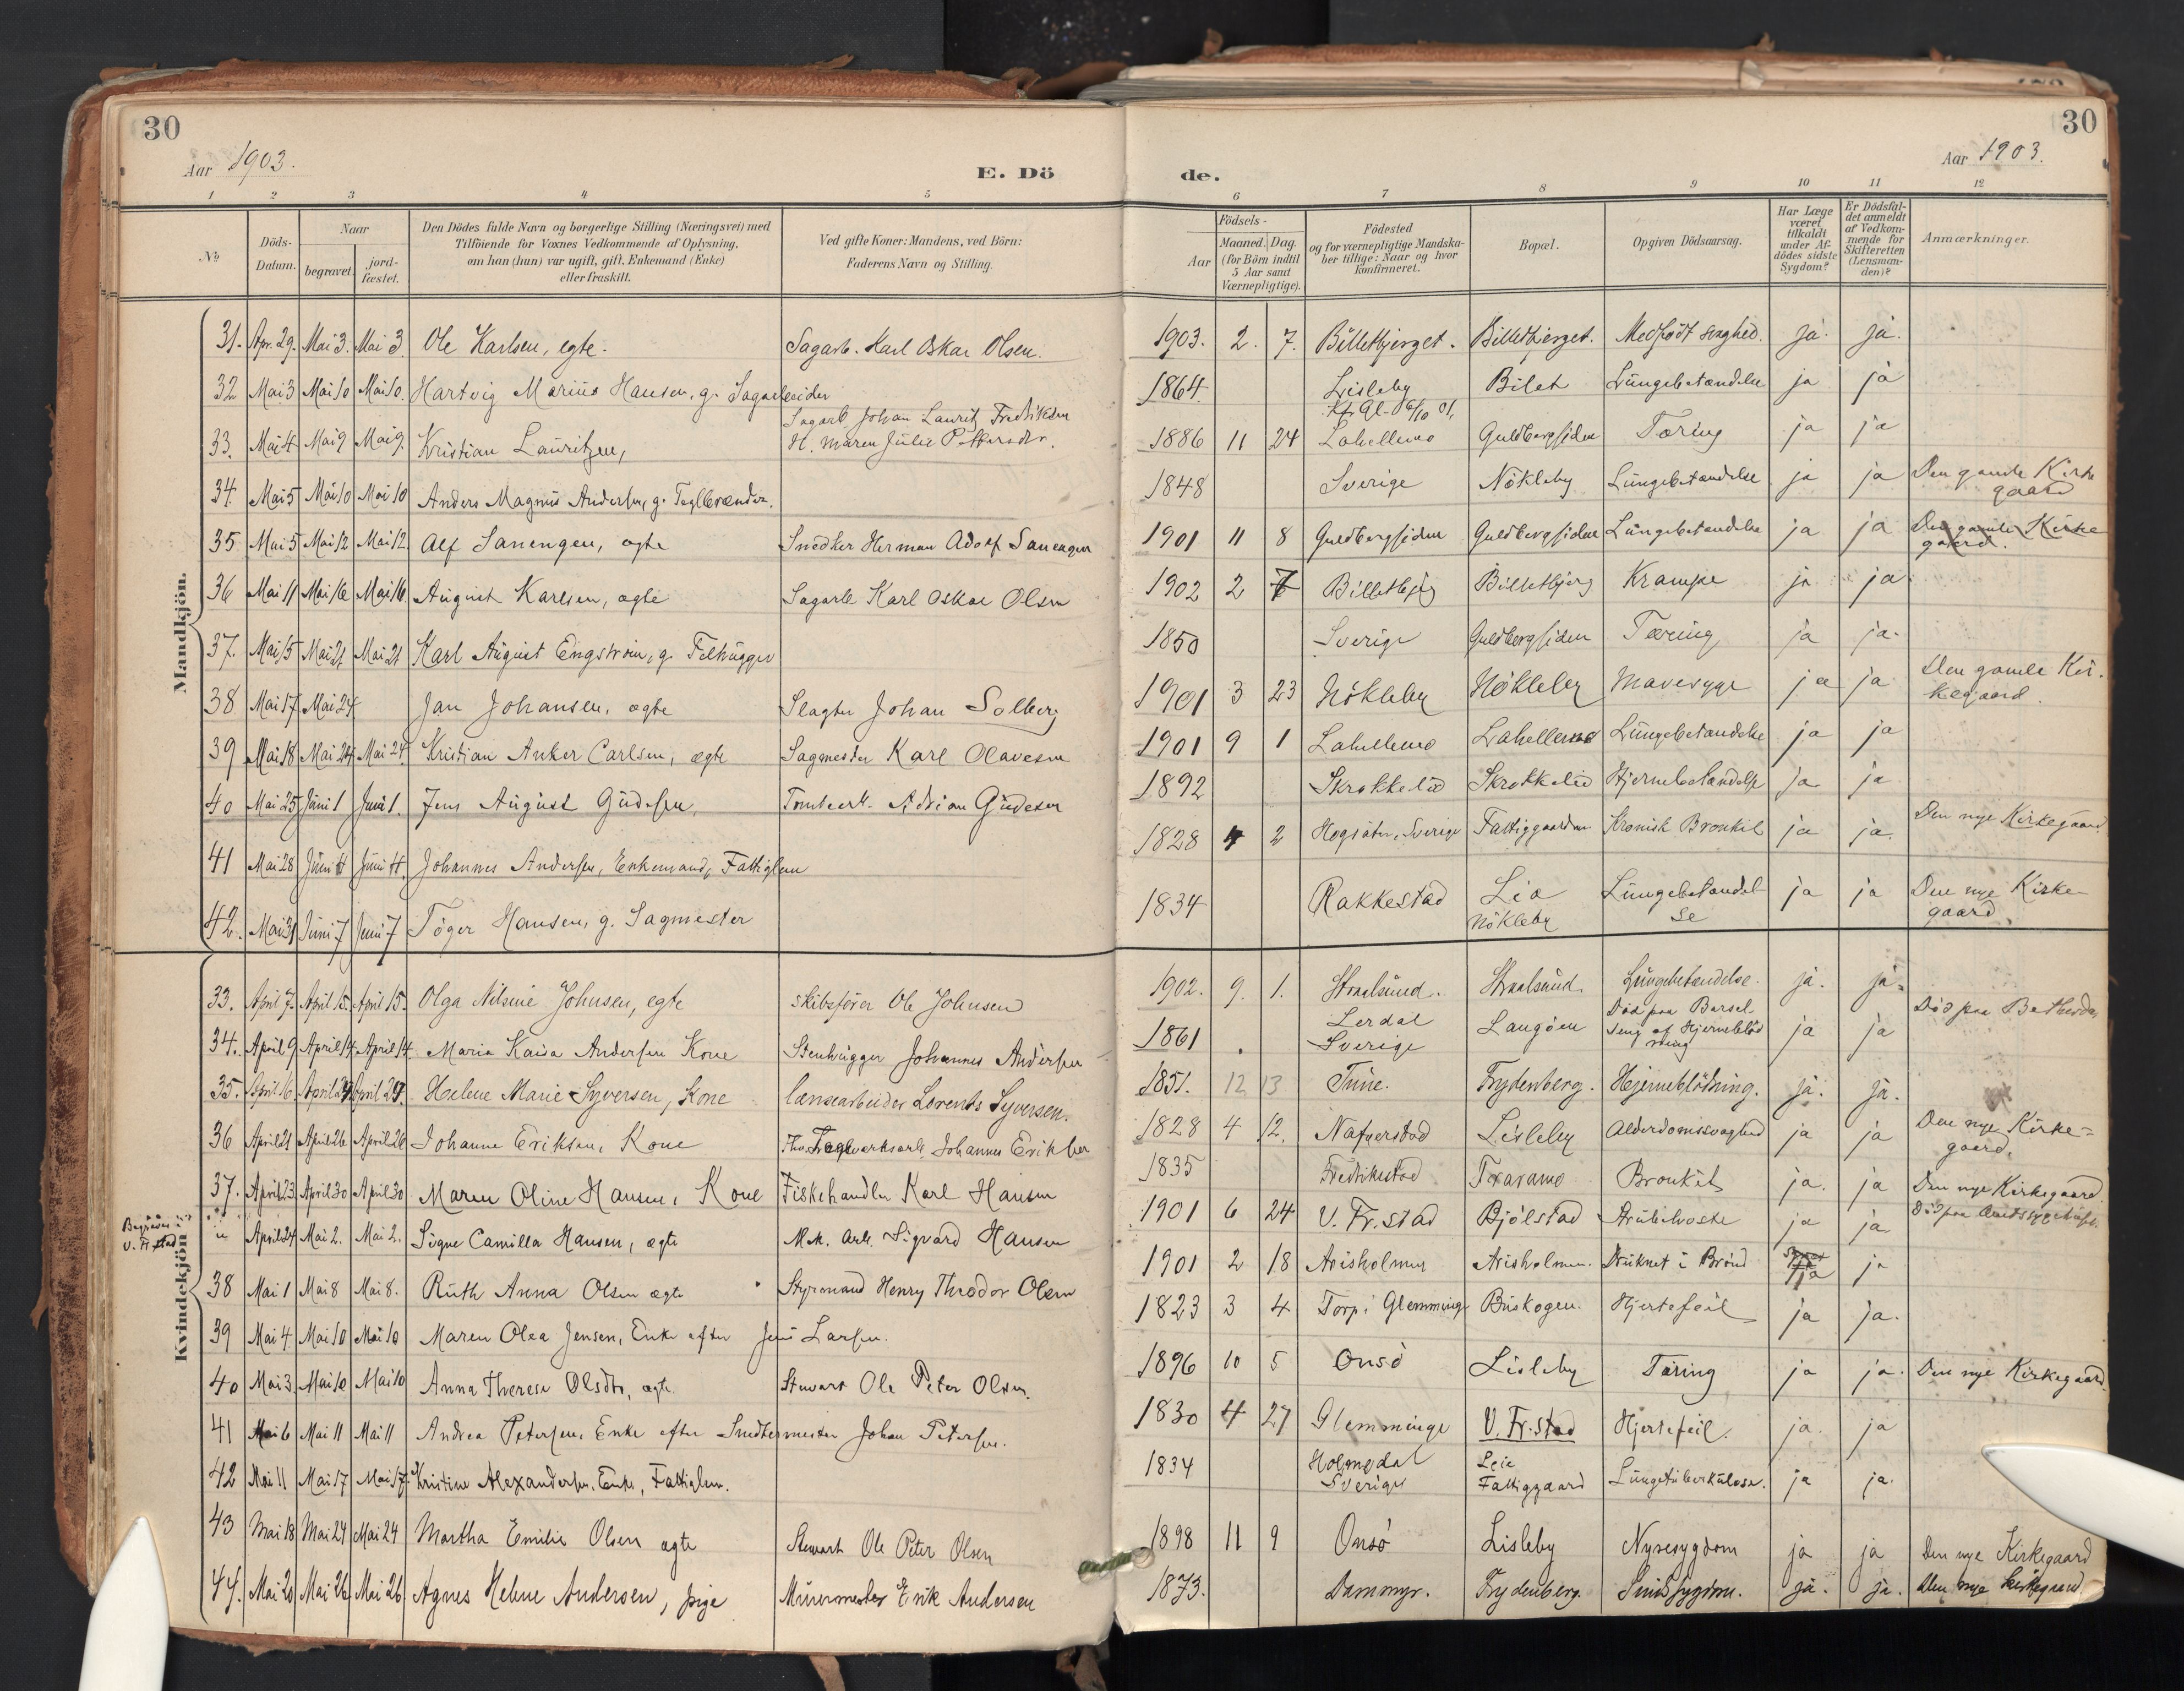 30
30
Aar 1903.
E. Dö
de.
Aar 1903.
1 2 3 4 5 6 7 8 9 10 11 12
No
Döds-Datum.
Naar
begravet.
jordfæstet.
Den Dödes fulde Navn og borgerlige Stilling (Næringsvei) med
Tilföiende for Voxnes Vedkommende af Oplysning,
om han (hun) var ugift, gift, Enkemand (Enke)
eller fraskilt.
Ved gifte Koner: Mandens, ved Börn:
Faderens Navn og Stilling.
Födsels-
Aar
Maaned. Dag.
(for Börn indtil
5 Aar samt
Værnepligtige).
Födested
og for værnepligtige Mandska-
ber tillige: Naar og hvor
konfirmeret.
Bopæl.
Opgiven Dödsaarsag.
Har Læge
været
tilkaldt
under Af-
dödes sidste
Sygdom?
Er Dödsfal-
det anmeldt
af Vedkom-
mende for
Skifteretten
(Lensman-
den)?
Anmærkninger.
Mandkjön.
31. Apr. 29. Mai 3. Mai 3. Ole Karlsen, egte. Sagarb. Karl Oskar Olsen. 1903. 2. 7. Billetbjerget. Billetbjerget. Medfödt svaghed. ja. ja.
32 Mai 3 Mai 10 Mai 10. Hartvig Marius Hansen, g. Sagarbeider 1864. Lisleby Bilet Lungebetændelse ja ja
33. Mai 4 Mai 9 Mai 9. Kristian Lauritzen, Sagarb Johan Lauritz Fredriksen
H. Maren Julie Pettersdtr. 1886 11 24 Lahellemo Guldbergsiden Tæring ja ja
34. Mai 5 Mai 10 Mai 10 Anders Magnus Andersen, g. Teglbrænder. 1848 Sverige Nökleby Lungebetændelse ja ja Den gamle Kirke
gaard
35 Mai 5 Mai 12 Mai 12 Alf Sanengen, ægte Snedker Herman Adolf Sanengen 1901 11 8 Guldbergsiden Guldbergsiden Lungebetændelse ja ja Den gamle Kirke
gaard.
36 Mai 11 Mai 16 Mai 16 August Karlsen, ægte Sagarb Karl Oskar Olsen 1902 2 7 Billetbjerg Billetbjerg Krampe ja ja
37. Mai 15 Mai 21 Mai 21 Karl August Engström, g. Felhugger 1850 Sverige Guldbergsiden Tæring ja ja.
38 Mai 17 Mai 24 Jan Johansen, ægte Slagter Johan Solberg 1901 3 23 Nökleby Nökleby Mavesyge ja ja Den gamle Kir-
kegaard.
39 Mai 18 Mai 24 Mai 24. Kristian Anker Carlsen, ægte Sagmester Karl Olavesen 1901 9 1 Lahellemo Lahellemo Lungebetændelse ja ja
40 Mai 25 Juni 1 Juni 1. Jens August Gudesen, Adrian Gudesen 1892 Skrokkelid Skrokkelid Hjernebetændelse ja ja
41 Mai 28 Juni 4 Juni 4. Johannes Andersen, Enkemand, Fattiglem 1828 4 2 Högsäter, Sverige Fattiggaarden Kronisk Bronkit ja ja. Den nye Kirkegaard
42. Mai 31 Juni 7 Juni 7 Töger Hansen, g. Sagmester 1834 Rakkestad Lia
Nökleby Lungebetændel
se ja ja Den nye Kirke-
gaard.
Kvindekjön
33. April 7. April 15. April 15. Olga Nilsine Johnsen, egte Skibsförer Ole Johnsen 1902. 9. 1. Stralsund. Stralsund. Lungebetændelse. ja. ja.
34. April 9 April 14 April 14 Maria Kaisa Andersen Kone Stenhugger Johannes Andersen 1861 Lerdal
Sverige Langöen Död paa Barsel
seng af Hjerneblöd
ning ja ja Död paa Bethesda
35. April 16. April 24 April 24. Helene Marie Syversen, Kone lænsearbeider Lorents Syversen. 1851. 12 13 Tune. Frydenberg. Hjerneblödning. ja. ja.
36 April 21 April 26 April 26 Johanne Eriksen, Kone Teglverksarb. Johannes Eriksen 1828 4 12. Nafverstad Lisleby Alderdomssvaghed ja ja Den nye Kirke-
gaard.
37. April 23 April 30 April 30 Maren Oline Hansen, Kone Fiskehandler Karl Hansen 1835 Fredrikstad Traramo Bronkit ja. ja Den nye Kirkegaard.
Begraves i
V. Fr.stad
April 24 Mai 2. Mai 2. Signe Camilla Hansen, ægte Mek. Arb. Sigvard Hansen 1901 6 24 V. Fr.stad Bjölstad Strubehoste ja ja Död paa Amtssygehuset.
38 Mai 1 Mai 8 Mai 8. Ruth Anna Olsen ægte Styrmand Henry Theodor Olsen 1901 2 18 Arisholmen Arisholmen. Druknet i Brönd ja ja
39 Mai 4. Mai 10 Mai 10 Maren Olea Jensen, Enke efter Jens Larsen. 1823 3 4 Torp i Glemminge Buskogen. Hjertefeil ja ja.
40 Mai 3. Mai 10 Mai 10 Anna Therese Olsdtr, ægte Stewart Ole Peter Olsen. 1896 10 5 Onsö Lisleby Tæring ja ja. Den nye Kirkegaard.
41 Mai 6 Mai 11 Mai 11 Andrea Petersen, Enke efter Snedkermester Johan Petersen. 1830 4 27 Glemminge V. Fr.stad Hjertefeil. ja. ja
42 Mai 11 Mai 17 Mai 17. Kristine Alexandersen, Enke, Fattiglem. 1834 Holmedal
Sverige Leie
Fattiggaard Lungetuberkulose. ja ja.
43 Mai 18 Mai 24 Mai 24 Martha Emilie Olsen ægte Stewart Ole Peter Olsen 1898 11 9 Onsö Lisleby Nyresygdom ja ja Den nye Kirkegaard
44. Mai 20 Mai 26 Mai 26 Agnes Helene Andersen, pige Murermester Erik Andersen 1873. Dammyr. Frydenberg. Sindssygdom. ja. ja. Den nye Kirkegaard